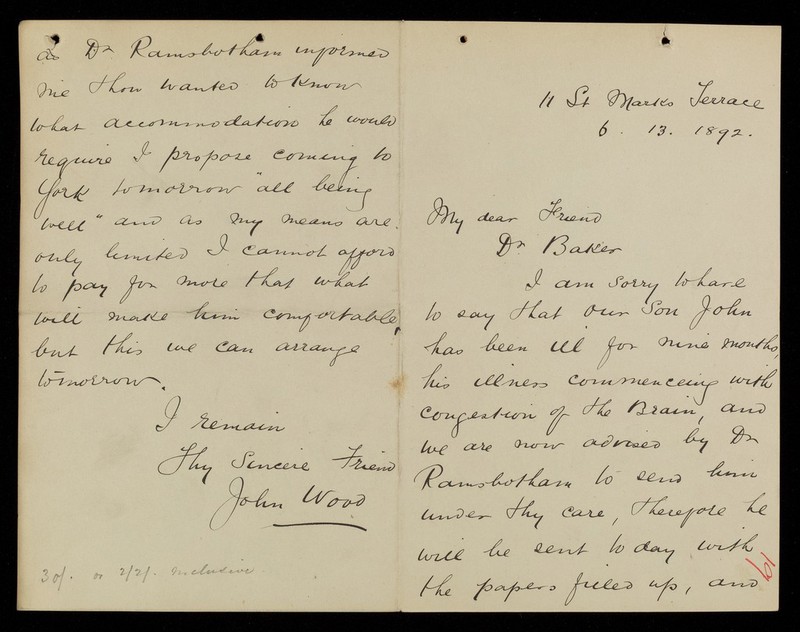 11 St Marks Terrace
6. 13. 1892.
My dear Friend
Dr Baker
I am sorry to have
to say that our Son John
has been ill for nine months,
his illness commenceing with
congestion of the Brain, and
we are now advised by Dr
Ramsbotham to send him
under thy care, therefore he
will be sent to day with
the papers filled up, and
as Dr Ramsbotham informed
me thou wanted to know
what accommodation he would
require I propose coming to
York tomorrow "all being
well" and as my means are
only limited I cannot afford
to pay for more that what
will make him comfortable,
but this we can arrange
tomorrow.
I remain
Thy Sincere Friend
John Wood
30/. or 2/2/. inclusive.